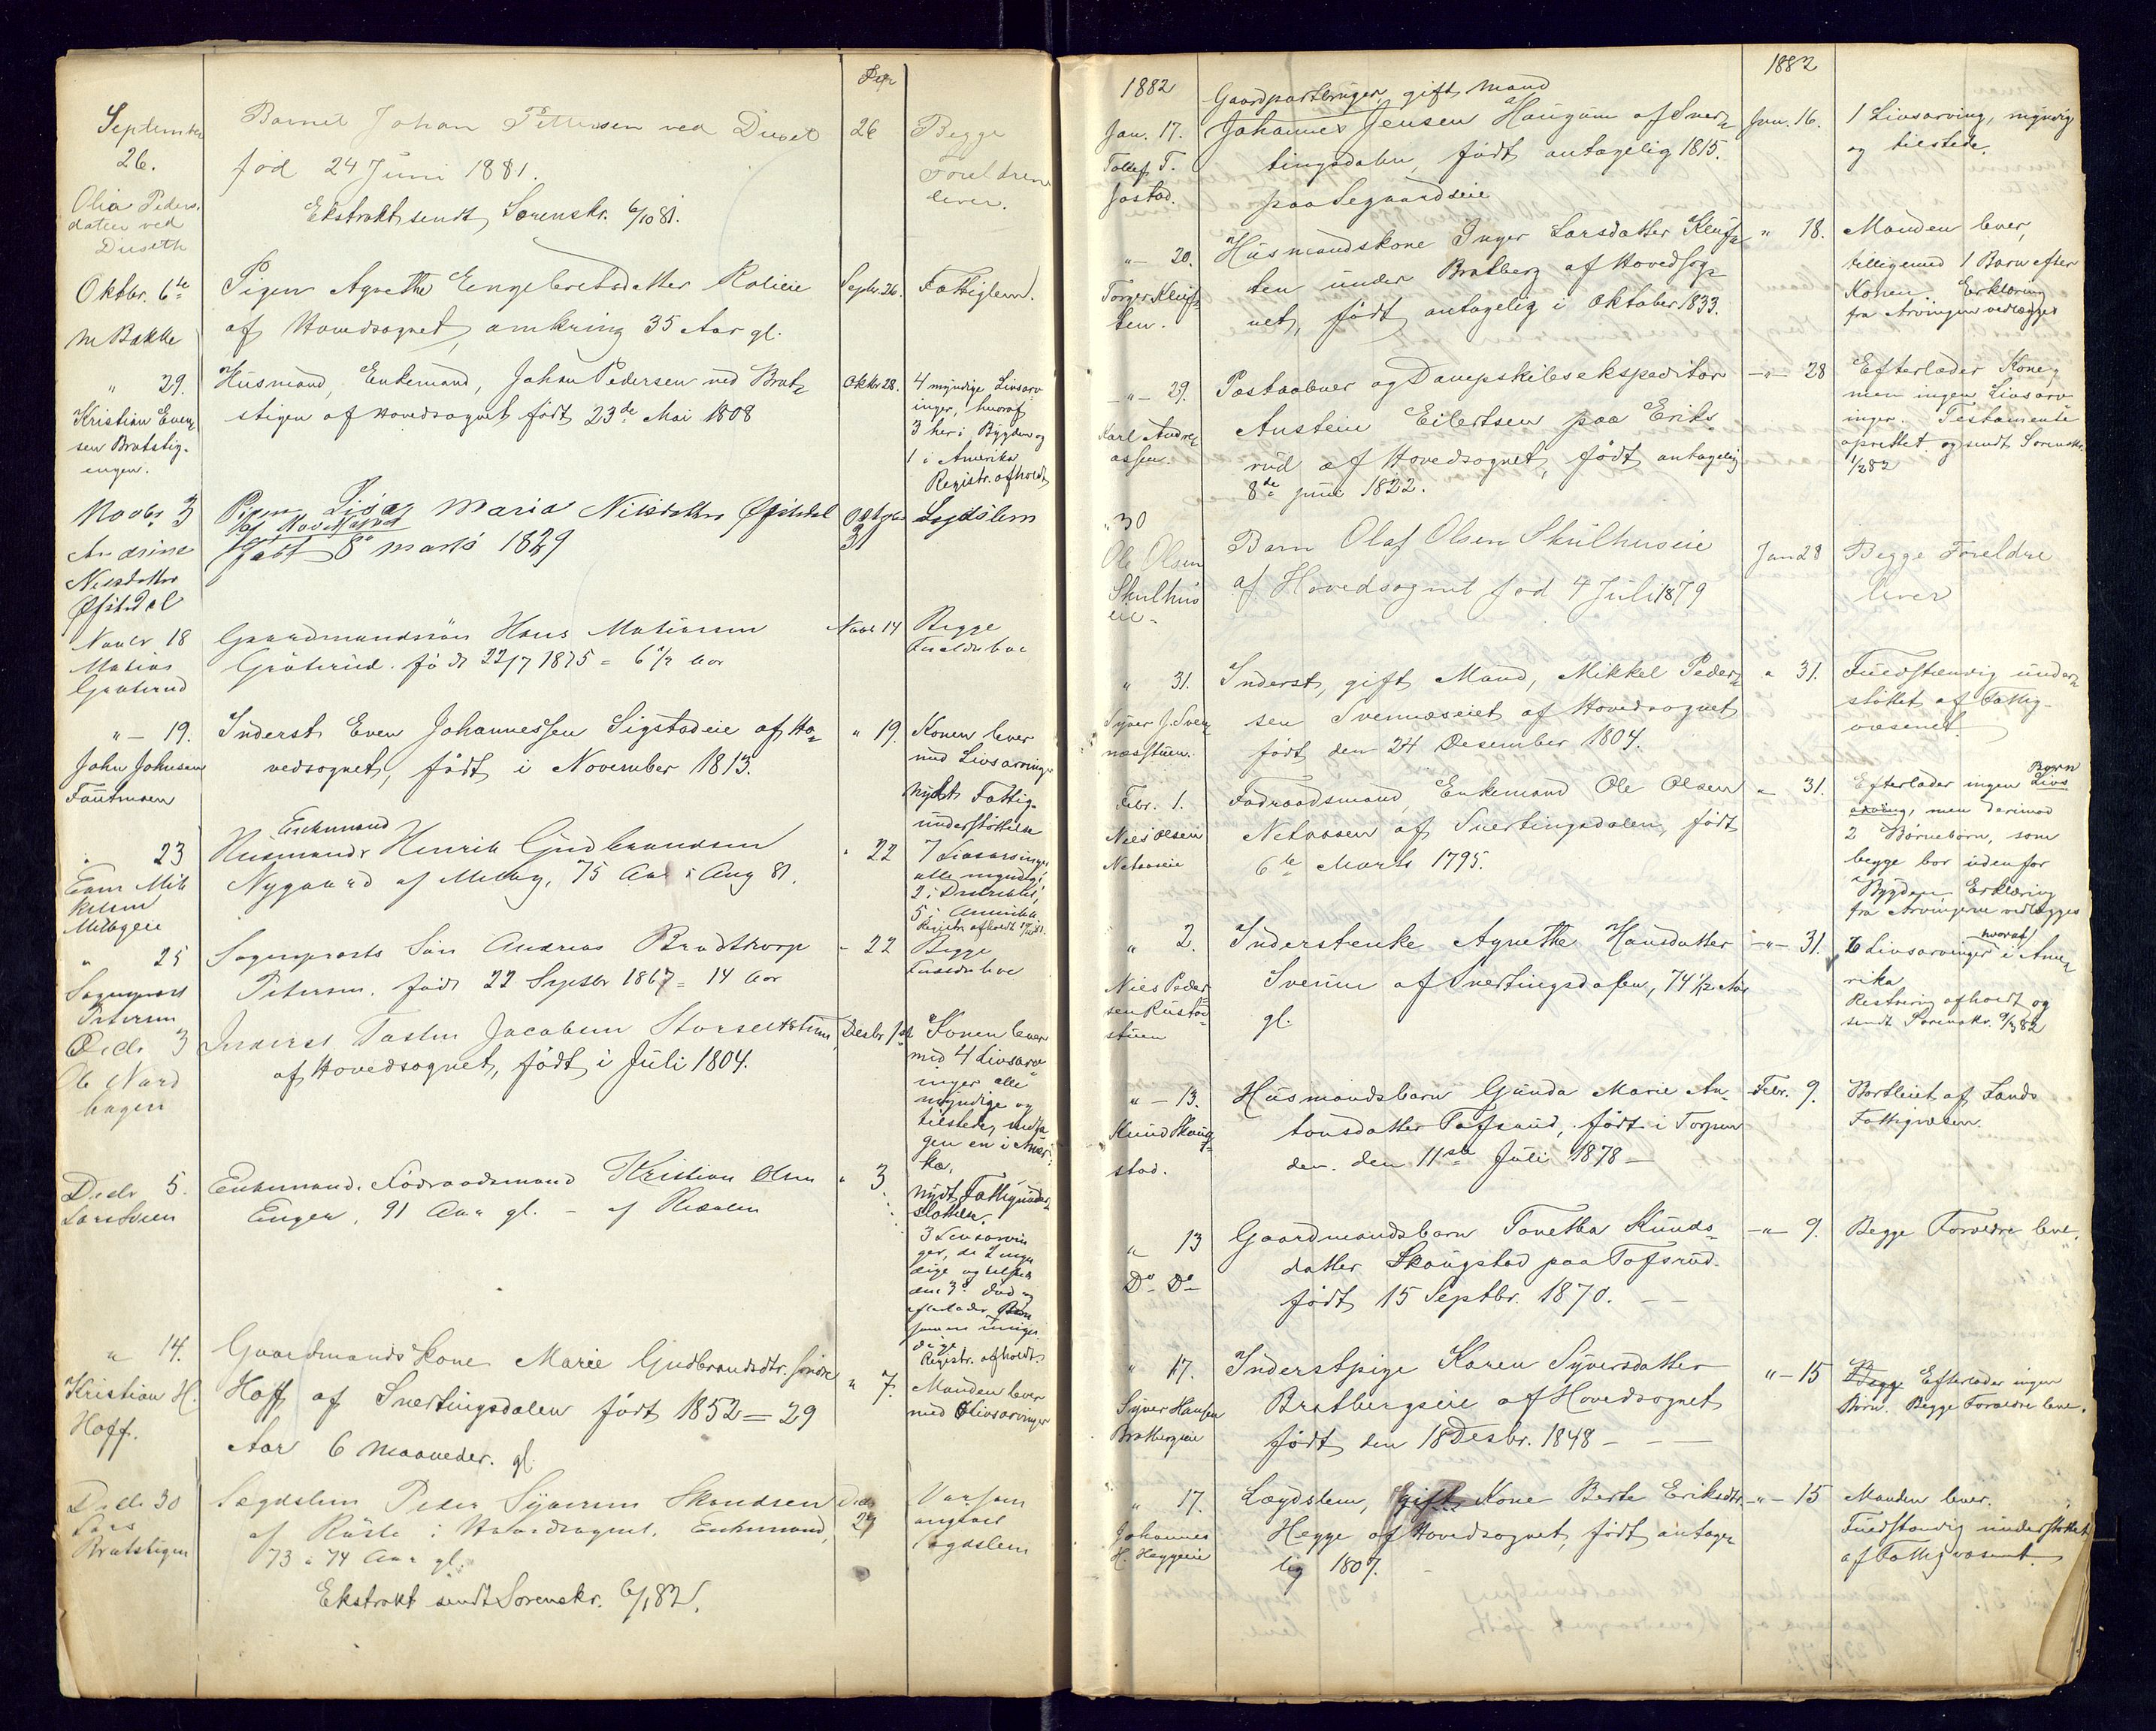 Sept
September
26.
Olia Peders.
datter ved
Duseth
Barnet Johan Pettersen ved Duset
fød 24 Juni 1881.
Ekstrakt sendt Sorenskr. 6/10 81.
26
Begge
Foreldrene
lever.
Oktbr. 6te
M Bakke
Pigen Agnethe Engebretsdatter Kolieie
af Hovedsognet, omkring 35 Aar gl.
Septbr. 26.
Fattiglem.
" 29.
Kristian Even
sen Bratstig-
engen.
Husmand, Enkemand, Johan Pedersen ved Brat-
stigen af Hovedsognet født 23de Mai 1808
Oktbr 28.
4 myndige Livsarv-
inger, hvoraf
3 her i Bygden og
1 i Amerika
Registr. afholdt
Novbr 3
Andrine
Nilsdatter
Øfstdal
Pigen Lisa Maria Nilsdatter Øfstdal
af Hovedsognet
født 8de marts 1829
Oktgb.
31
Lægdslem
Novbr. 18
Matias
Gröterud
Gaardmandssön Hans Matiasen
Gröterud. född 22/7 1875 = 6 1/2 Aar
Novbr 14
Begge
Forældre leve
" - 19.
John Johnsen
Fautmoen
Inderst Even Johannessen Sigstadeie af Ho-
vedsognet, født i November 1813.
" 19.
Konen lever
med Livsarvinger
Nydt Fattig-
understøttelse
" 23
Even Mik
kelsen
Milbyeie
Enkemand
Husmand Henrik Gudbrandsen
Nygaard af Milby, 75 Aar i Aug 81.
" 22
7 Livsarvinger
alle myndige,
2 i Distriktet,
5 i Amerika.
Registr. afholdt
" 25
Sogneprest
Petersen
Sogneprests Søn Andreas Bradthorp
Petersen. född 22 Septbr 1867 = 14 Aar
- 22
Begge
Forældre leve
Decbr 3
Ole Nord
hagen
Inderst Tosten Jacobsen
af Hovedsognet, født i Juli 1804.
Desbr 1ste
Konen lever
med 4 Livsarv-
inger alle
myndige og
tilstede, undta
gen en i Amer-
ka.
Nydt Fattigunder
støttelse.
Decbr 5.
Lars Sveen
Enkemand. Födraadsmand Kristian Olsen
Engen, 91 Aar gl. - af
" 3
3 Livsarvin
ger, de 2 myn
dige og tilstede
den 3de død og
efterlader Børn
umyn
dige
Registr. afholdt.
" 14.
Kristian H.
Hoff.
Gaardmandskone Marie Gudbrandsdtr. søndre
Hoff af Snertingsdalen født 1852 = 29
Aar 6 maaneder. gl.
" 7.
Manden lever
med Livsarvinger
Decbr 30
Lars
Bratstigen
Lægdslem Peder Syversen Skondsen
af Röste i Hovedsognet. Enkemand,
73 a 74 Aar gl.
Ekstrakt sendt Sorenskr. 6/1 82.
Decbr
27
Var som
angivet
lægdslem
1882
1882
Jan. 17.
Tollef T.
Jostad.
Gaardpartbruger, gift Mand
Johannes Jensen Haugum af Sner-
tingsdalen, født antagelig 1815.
paa Segaardseie
Jan. 16.
1 Livsarving, myndig
og tilstede.
" - 20.
Torger Kluf-
ten.
Husmandskone Inger Larsdatter Kluf-
ten under Bratberg af Hovedsog-
net, født antagelig i Oktober 1833.
" 18.
Manden lever,
tilligemed 1 Barn efter
Konen. Erklæring
fra Arvingen vedlægges
- " - 29.
Karl Andre
assen.
Postaabner og Dampskibsekspeditör
Austein Eilertsen paa Eriks-
rud af Hovedsognet, født antagelig
8de juni 1822.
- " - 28
Efterlader Kone,
men ingen Livsarv-
inger. Testamente
oprettet og sendt Sorenskr.
1/2 82
" 30
Ole Olsen
Skulhus
eie.
Barn Olaf Olsen Skulhuseie
af Hovedsognet fød 4 Juli 1879
Jan 28
Begge Foreldre
lever
" 31.
Syver J. Sven
næsstuen.
Inderst, gift Mand, Mikkel Peder-
sen Svennæseiet af Hovedsognet
født den 24 Desember 1804.
" 31.
Fuldstændig under-
støttet af Fattig-
væsenet.
Febr. 1.
Niels Olsen
Netaaseie
Födraadsmand, Enkemand Ole Olsen
Netaasen af Snertingsdalen, født
6te Marts 1795.
" 31.
Efterlader ingen Livs
Børn
arving, men derimod
2 Børnebørn, som
begge bor udenfor
Bygden Erklæring
fra Arvingerne vedlægges
" 2.
Niels Peder
sen Rustad-
stuen
Inderstenke Agnethe Hansdatter
Sveum af Snertingsdalen, 74 1/2 Aar
gl.
- " - 31.
6 Livsarvinger hvoraf i Ame-
rika
Restering afholdt og
sendt Sorenskr. 9/3 82
" - 13.
Knud Skoug-
stad.
Husmandsbarn Gunda Marie An-
tonsdatter Tofsrud, født i Torpen
den. den 11te Juli 1878 -
Febr. 9.
Bortleiet af Lands
Fattigvæsen.
" 13
Do Do
Gaardmandsbarn Tonetha Knuds-
datter Skougstad paa Tofsrud.
født 15 Septbr. 1870. - -
- " - 9.
Begge Forældre leve.
" 17.
Syver Hansen
Bratbergseie
Inderstpige Karen Syversdatter
Bratbergseie af Hovedsognet
født den 18 Desbr. 1848 - - -
" - 15
Begge Efterlader ingen
Börn. Begge Forældre leve.
" 17.
Johannes
H. Heggeeie
Lægdslem, Gift Kone Berte Eriksdtr.
Hegge af Hovedsognet, født antage-
lig 1807.
- " - 15
Manden lever.
Fuldstændig understöttet
af Fattigvæsenet.